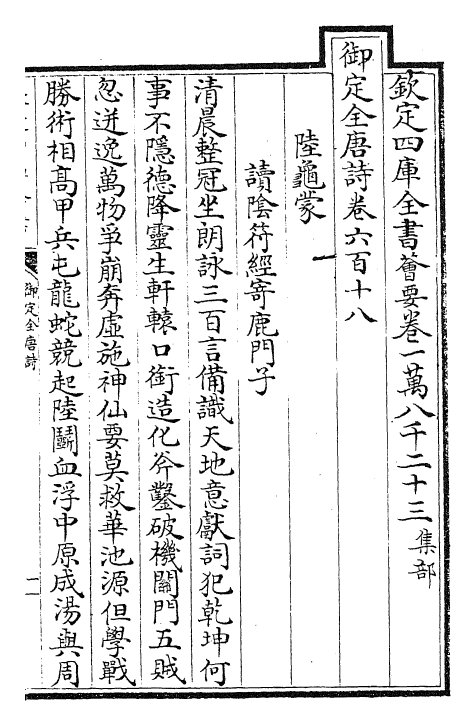 欽定四庫全書薈要卷一萬八千二十三 集部
御定全唐詩卷六百十八
陸龜蒙
讀陰符經寄鹿門子
清晨整冠坐朗詠三百言備識天地意獻詞犯乾坤何
事不隱德降靈生軒轅口銜造化斧鑿破機關門五賊
忽迸逸萬物爭崩奔虛施神仙要莫救華池源但學戰
勝術相高甲兵屯龍蛇競起陸鬬血浮中原成湯與周
御定全唐詩
一